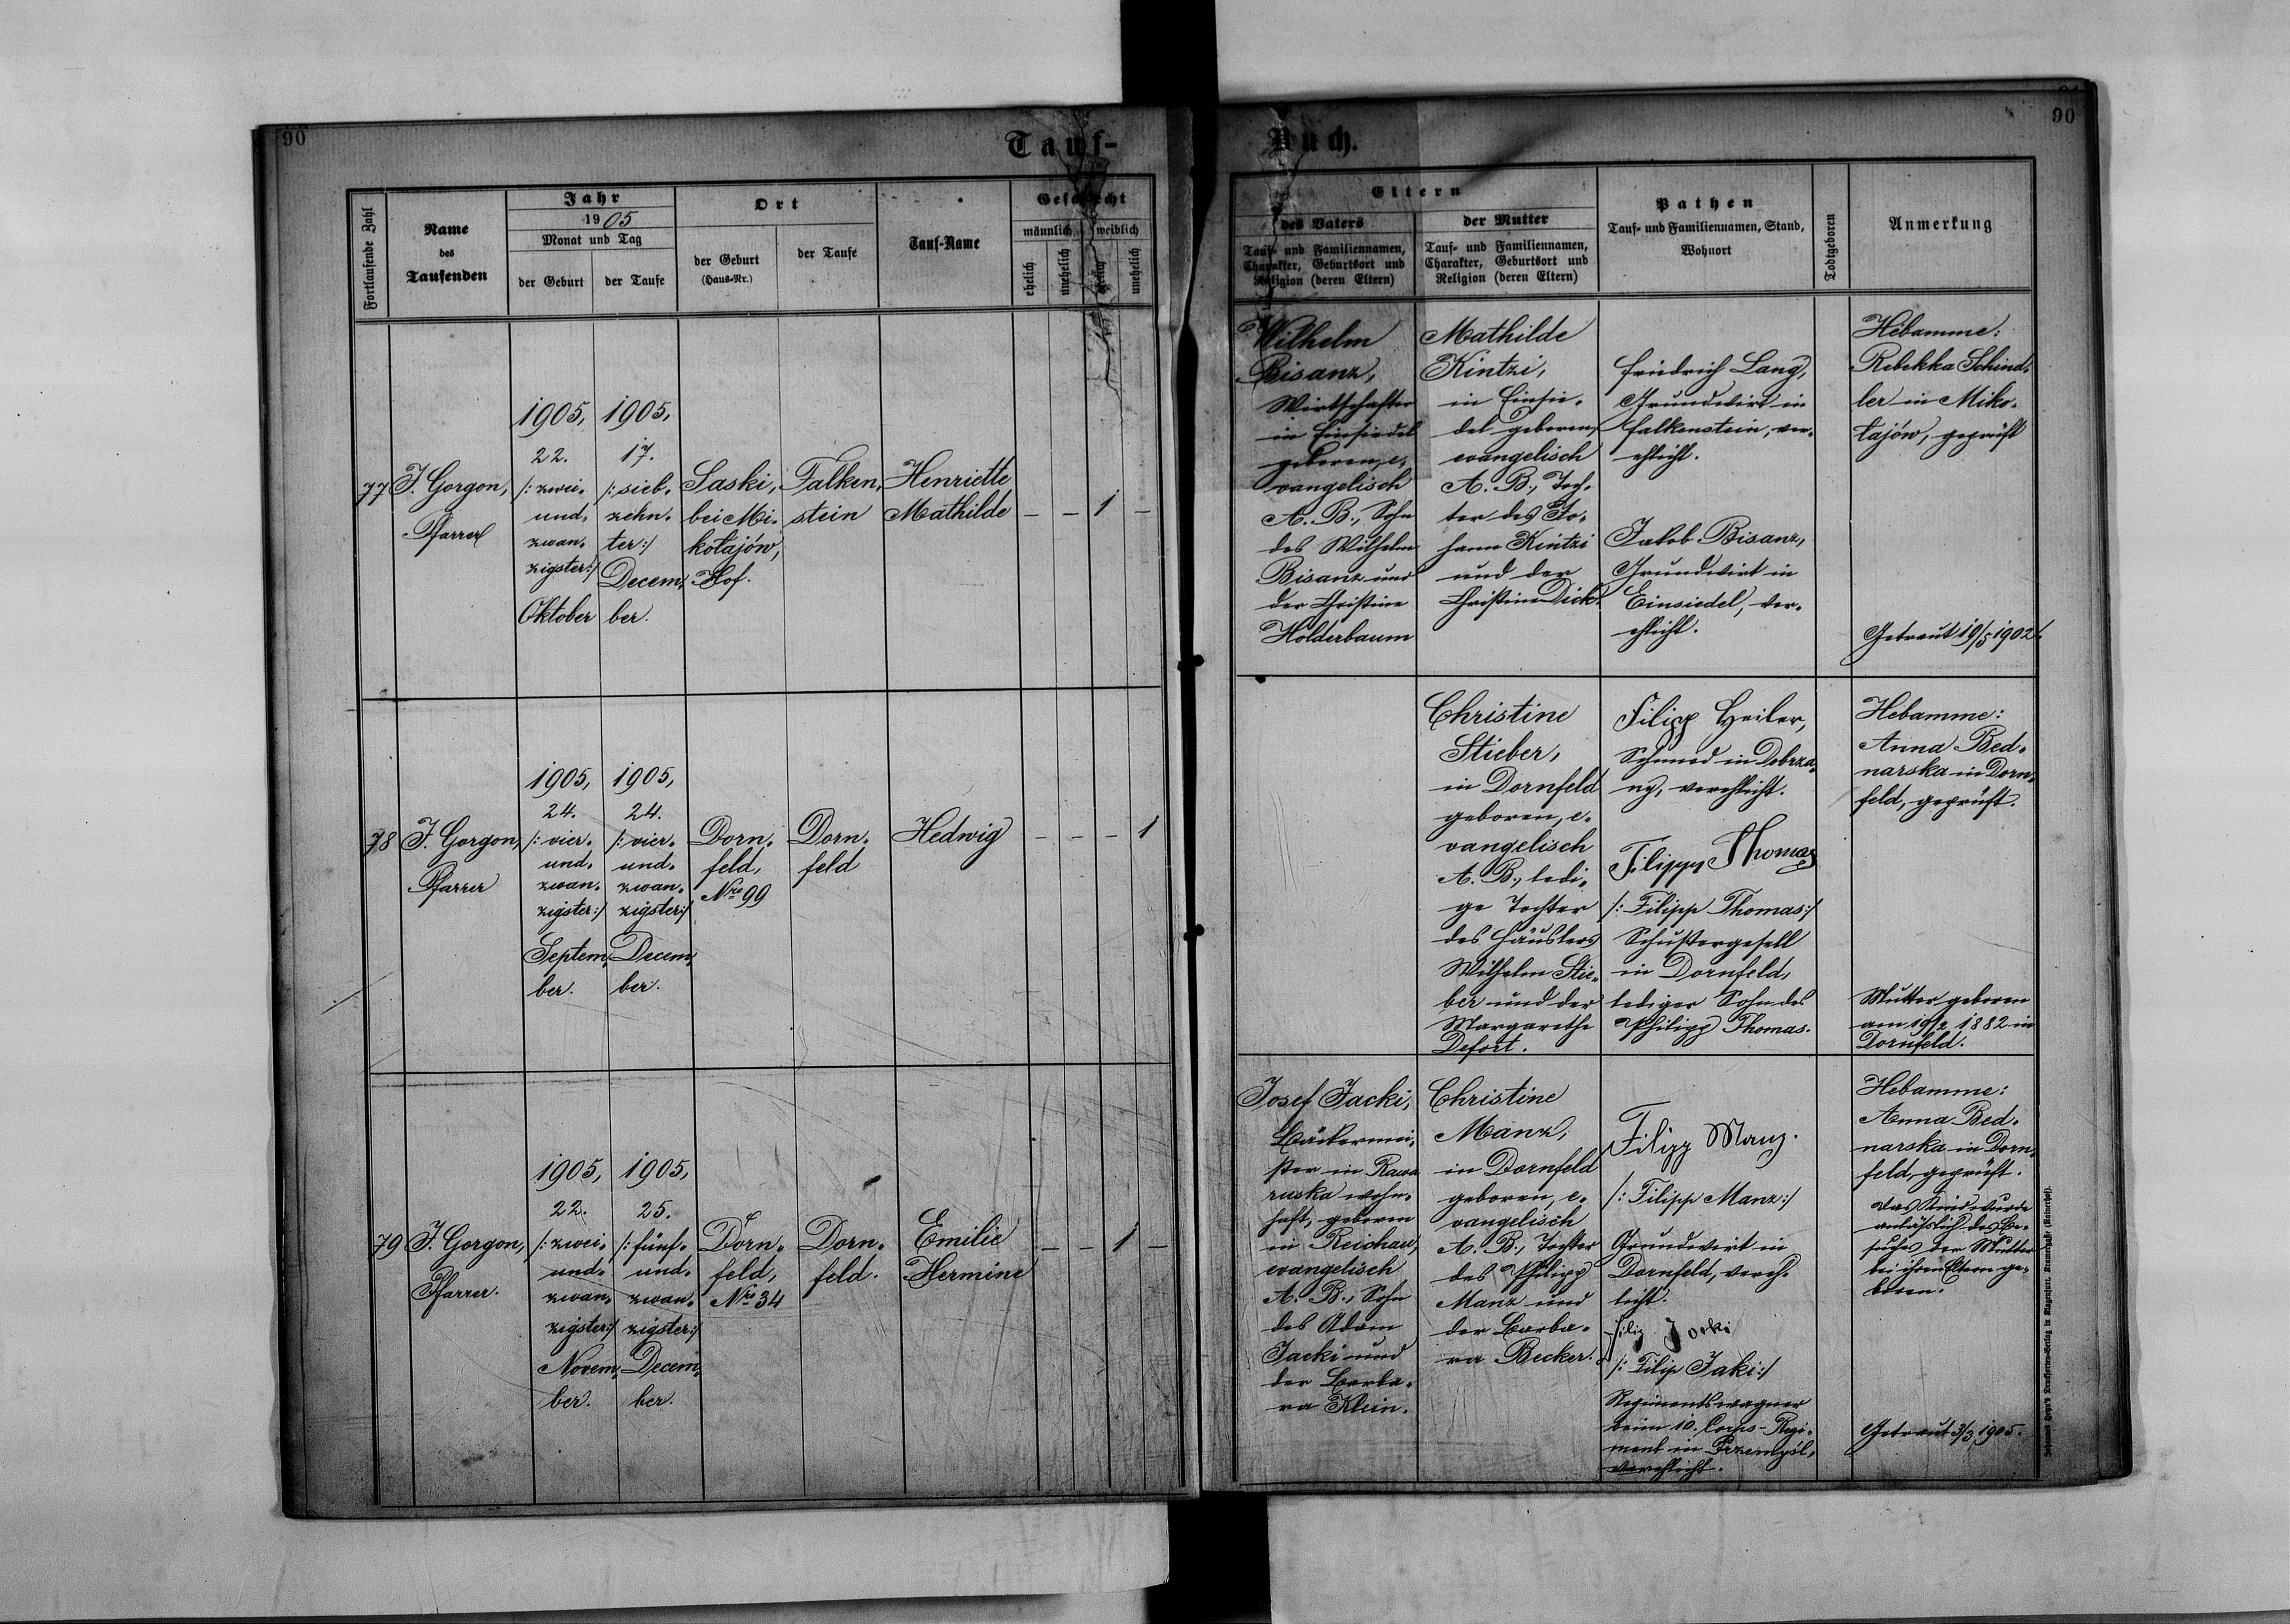 90
Tauf-
Fortlaufende Zahl
Name
des
Taufenden
Jahr
1905
Monat und Tag
der Geburt
der Taufe
Ort
der Geburt
(Haus-Nr.)
der Taufe
Tauf-Name
Geschlecht
männlich
weiblich
ehelich
unehelich
ehelich
unehelich
77
J. Gorgon,
Pfarrer
1905,
22.
/: zwei-
und-
zwan-
zigster :/
Oktober
1905,
17.
/: sieb-
zehn-
ter :/
Decem-
ber.
Laski,
bei Mi-
kołajów,
Hof.
Falken-
stein
Henriette
Mathilde
– – 1 –
78
J. Gorgon,
Pfarrer
1905,
24.
/: vier-
und-
zwan-
zigster :/
Septem-
ber.
1905,
24.
/: vier-
und-
zwan-
zigster :/
Decem-
ber.
Dorn-
feld,
Nro 99
Dorn-
feld
Hedwig
– – – 1
79
J. Gorgon,
Pfarrer.
1905,
22.
/: zwei-
und-
zwan-
zigster :/
Novem-
ber.
1905,
25.
/: fünf-
und-
zwan-
zigster :/
Decem-
ber.
Dorn-
feld,
Nro 34
Dorn-
feld.
Emilie
Hermine
– – 1 –
Buch.
90
Eltern
des Vaters
Tauf- und Familiennamen,
Charakter, Geburtsort und
Religion (deren Eltern)
der Mutter
Tauf- und Familiennamen,
Charakter, Geburtsort und
Religion (deren Eltern)
Pathen
Tauf- und Familiennamen, Stand,
Wohnort
Todtgeboren
Anmerkung
Wilhelm
Bisanz,
Wirtschafter
in Einsiedel
geboren, e-
vangelisch
A. B., Sohn
des Wilhelm
Bisanz und
der Christine
Holderbaum
Mathilde
Kintzi,
in Einsie-
del geboren,
evangelisch
A. B., Toch-
ter des Jo-
hann Kintzi
und der
Christine Dick.
Friedrich Lang,
Grundwirt in
Falkenstein, ver-
ehlicht.
Jakob Bisanz,
Grundwirt in
Einsiedel, ver-
ehlicht.
Hebamme:
Rebekka Schind-
ler in Miko-
łajów, geprüft
Getraut 19/5 1902.
Christine
Stieber,
in Dornfeld
geboren, e-
vangelisch
A. B., ledi-
ge Tochter
des Häuslers
Wilhelm Stie-
ber und der
Margarethe
Defort.
Filipp Heiler,
Schmied in Dobrza-
ny, verehlicht.
Filipp Thomas
/: Filipp Thomas :/
Schustergesell
in Dornfeld,
lediger Sohn des
Philipp Thomas.
Hebamme:
Anna Bed-
narska in Dorn-
feld, geprüft.
Mutter geboren
am 19/2 1882 in
Dornfeld.
Josef Jacki,
Bäckermei-
ster in Rawa
ruska wohn-
haft, geboren
in Reichau,
evangelisch
A. B., Sohn
des Adam
Jacki und
der Barba-
ra Klein.
Christine
Manz,
in Dornfeld
geboren, e-
vangelisch
A. B., Tochter
des Philipp
Manz und
der Barba-
ra Becker.
Filipp Manz.
/: Filipp Manz :/
Grundwirt in
Dornfeld, vereh-
licht.
Filip Jacki
/: Filip Jaki :/
Regimentswagner
beim 10. Corps-Regi-
ment in Przemyśl,
verehlicht.
Hebamme:
Anna Bed-
narska in Dorn-
feld, geprüft.
Das Kind wurde
anläßlich des Be-
suches der Mutter
bei ihren Eltern ge-
boren.
Getraut 3/3 1905.